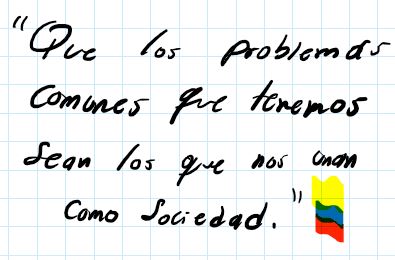 "Que los problemas
comunes que tenemos
sean los que nos unan
como sociedad."